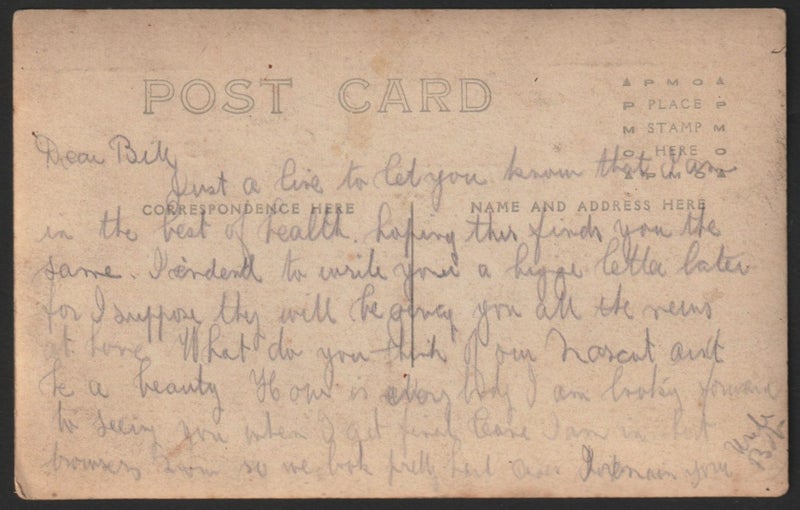 POST CARD
APMOA
P PLACE P
M STAMP M
O HERE O
APMOA
Dear Bill
Just a line to let you know that I am
CORRESPONDENCE HERE
NAME AND ADDRESS HERE
in the best of health. hoping this finds you the
same. I indend to write you a bigge letta later
for I suppose they will be you all the news
at home What do you think of our Mascot aint
he a beauty How is every body I am looking forward
to seeing you when I get final leave I am in
so we look pretty I remain your